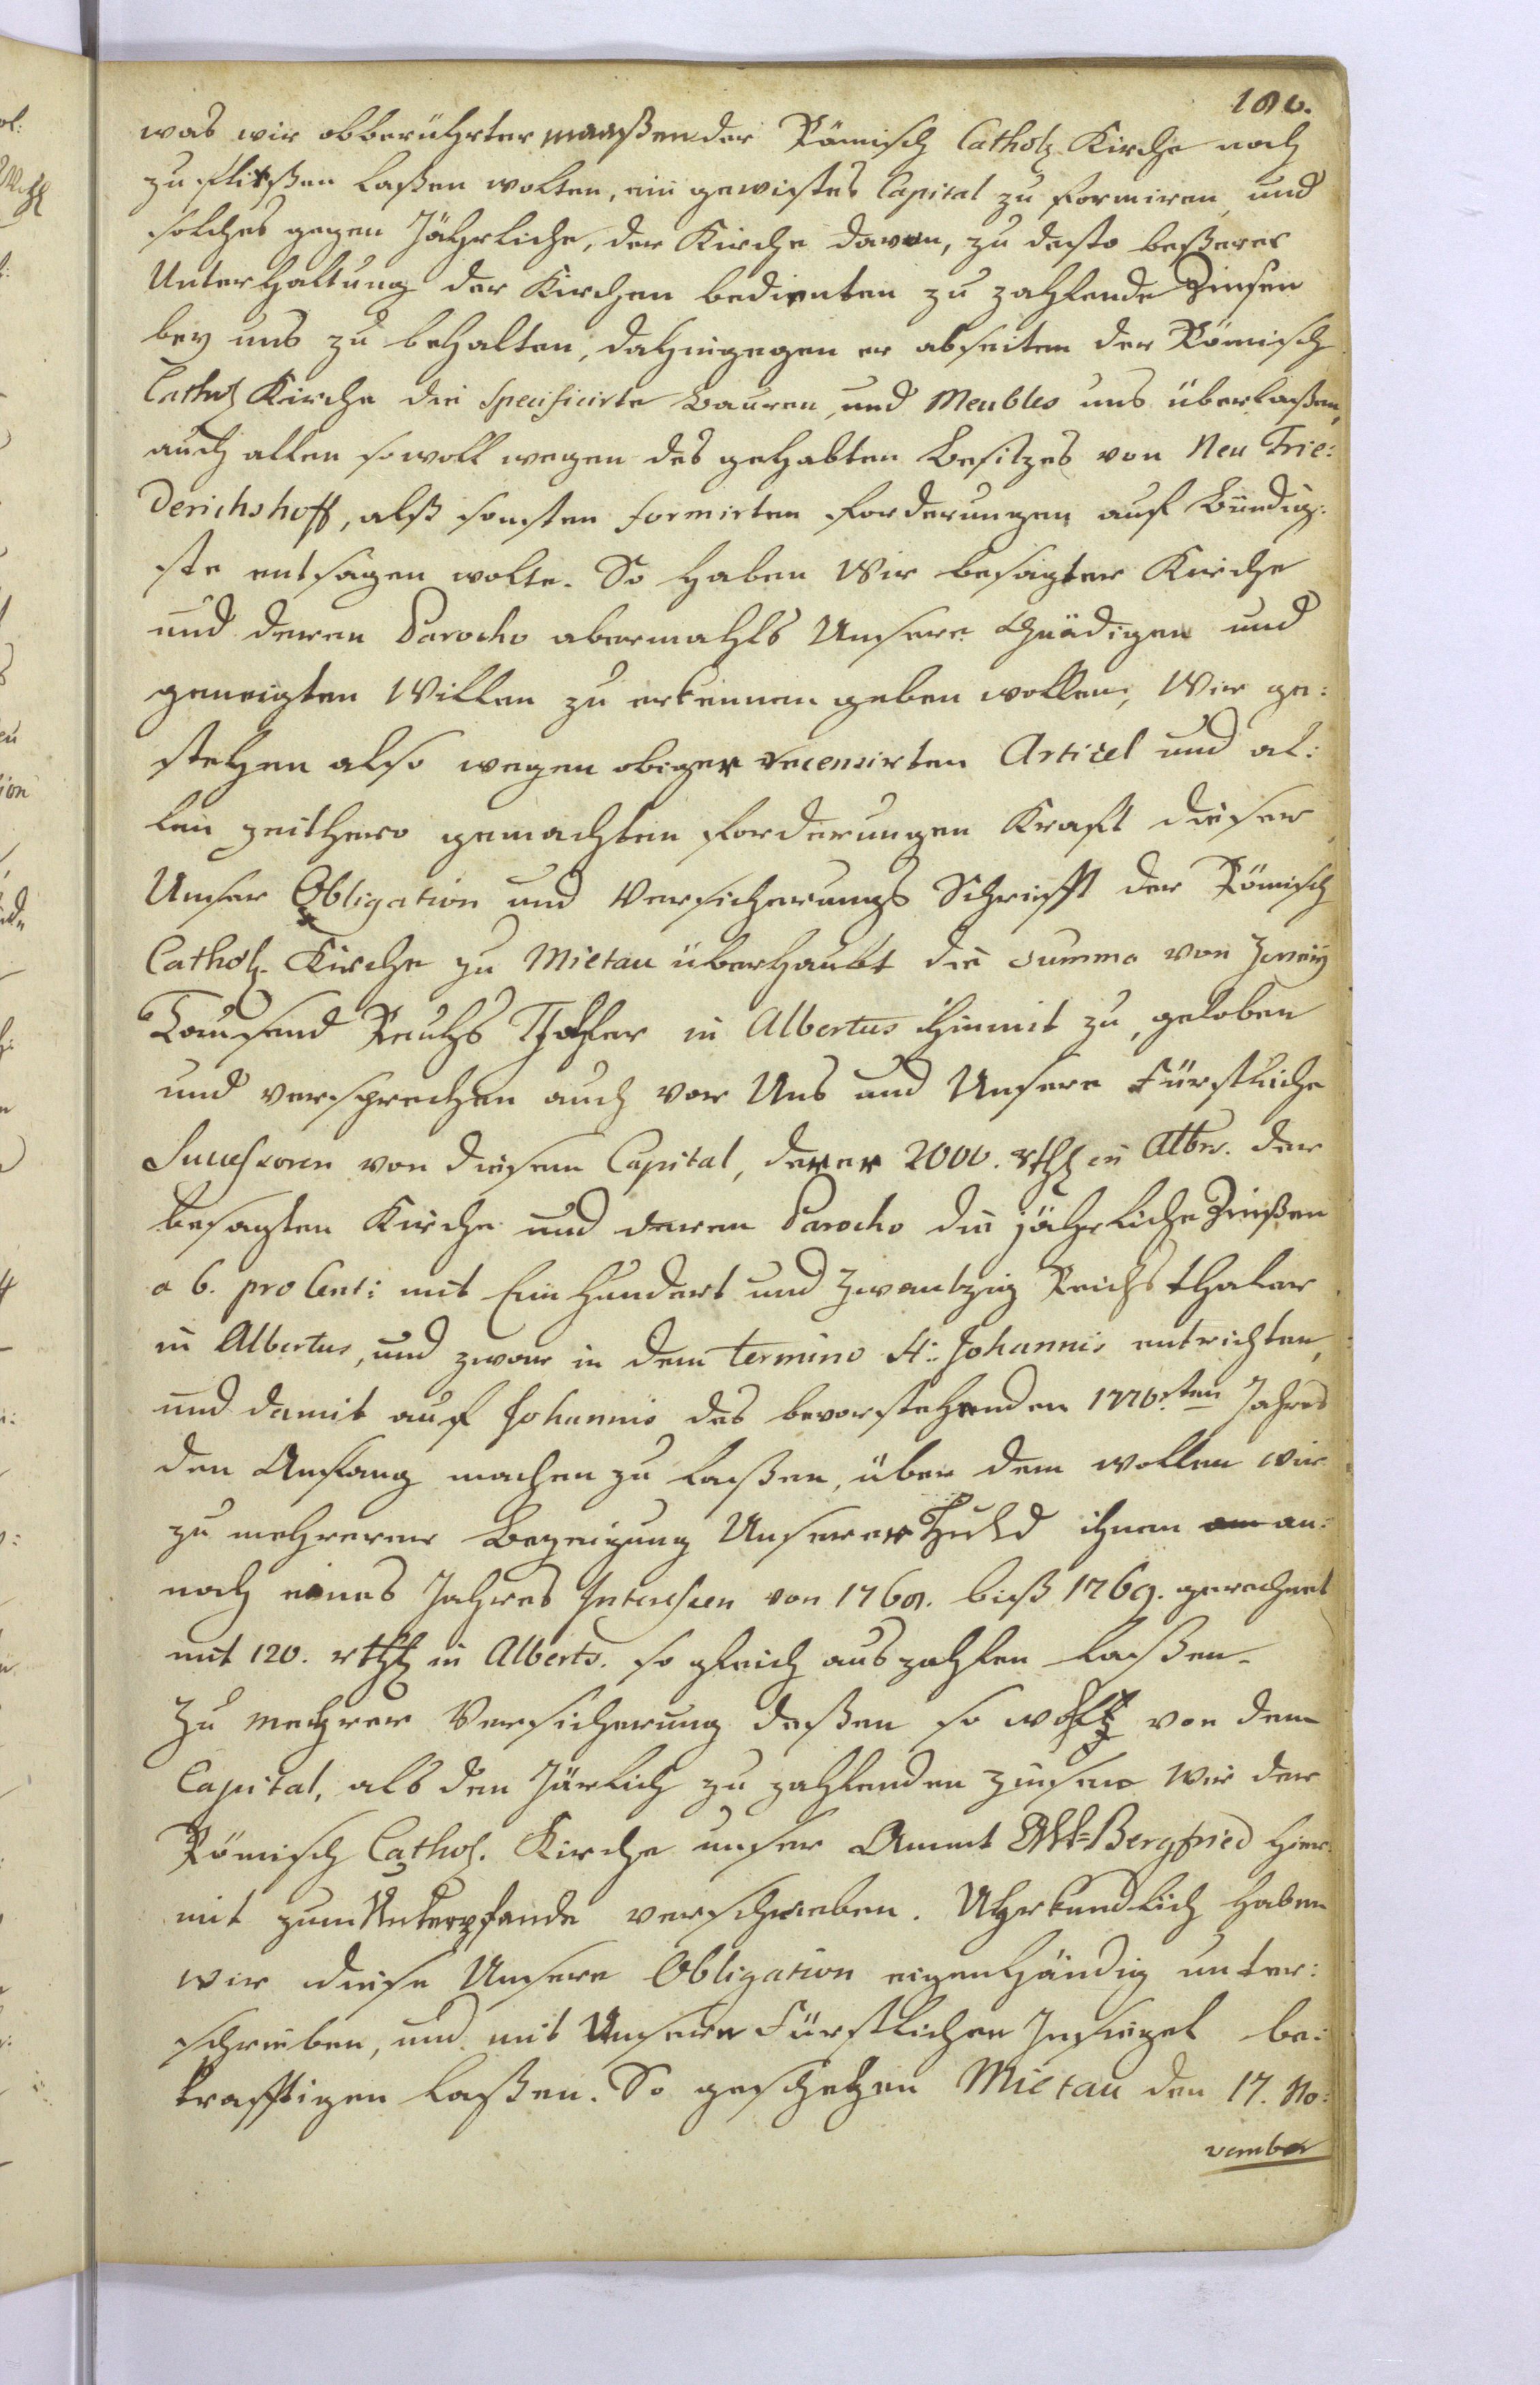 100.
was wir obberührter maaßen der Römisch Cathol. Kirche noch
zu fließen laßen wolten, ein gewißes Capital zu formiren, und
solches gegen Jährliche, der Kirche davon, zu desto beßerer
Unterhaltung der Kirchen bedienten zu zahlende Zinsen
bey uns zu behalten, dahingegen er abseiten der Römisch
Cathol. Kirche die specificirte Bauren, und Meubles uns überlaßen,
auch allen sowoll wegen des gehabten Besitzes von Neu Frie:
derichshoff, alß sonsten formirten forderungen auf bündig:
ste entsagen wolte. So haben Wir besagter Kirche
und deren Parocho abermahls Unsere Gnädigen und
geneigten Willen zu erkennen geben wollen, Wir ge:
stehen also wegen obiger recensirten Articel und al:
len zeithero gemachten forderungen Kraft dieser
Unser Obligation und Versicherungs Schrifft der Römisch
Cathol. Kirche zu Mietau überhaubt die summa von Zweÿ
Tausend Reichs Thaler in Albertus hiemit zu, geloben
und versprechen auch vor Uns und Unsere Fürstliche
Successoren von diesem Capital, derer 2000. rthl in Alber. der
besagten Kirche und deren Parocho die jährliche Zinßen
a 6. pro Cent: mit Ein hundert und zwantzig Reichsthaler
in Albertus, und zwar in dem termino St: Johannis entrichten,
und damit auf Johannis des bevorstehenden 1770.sten Jahres
den Anfang machen zu laßen, über dem wollen wir
zu mehrerer Bezeigung Unserer Huld ihnen an:
noch eines Jahres Interessen von 1768. biß 1769. gerechnet
mit 120. rthl in Alberts. so gleich auszahlen laßen.
Zu mehrer Versicherung deßen so wohl von dem
Capital, als den Järlich zu zahlenden zinsen Wir der
Römisch Cathol. Kirche unser Ammt Alt=Bergfried hier
mit zum Unterpfande verschrieben. Uhrkundlich haben
wir diese Unsere Obligation eigenhändig unter:
schrieben, und mit Unsern Fürstlichen Insiegel be:
krafftigen laßen. So geschehen Mietau den 17. No:
vember